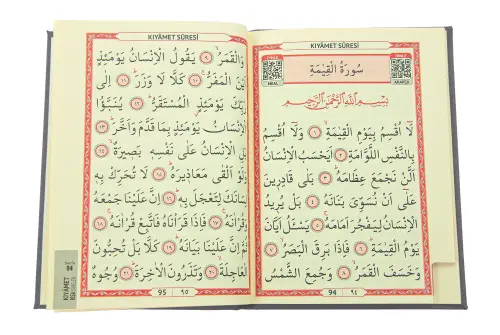 KIYÂMET SÛRESİ
سُورَةُ الْقِيٰمَةِ
MEAL
ARAPÇA
بِسْمِ اللّٰهِ الرَّحْمٰنِ الرَّحِيمِ
لَٓا اُقْسِمُ بِيَوْمِ الْقِيٰمَةِ ﴿١﴾ وَلَٓا اُقْسِمُ
بِالنَّفْسِ اللَّوَّامَةِ ﴿٢﴾ اَيَحْسَبُ الْاِنْسَانُ
اَلَّنْ نَجْمَعَ عِظَامَهُ ﴿٣﴾ بَلٰى قَادِرِينَ
عَلٰٓى اَنْ نُسَوِّيَ بَنَانَهُ ﴿٤﴾ بَلْ يُرِيدُ
الْاِنْسَانُ لِيَفْجُرَ اَمَامَهُ ﴿٥﴾ يَسْـَٔلُ اَيَّانَ
يَوْمُ الْقِيٰمَةِ ﴿٦﴾ فَاِذَا بَرِقَ الْبَصَرُ ﴿٧﴾
وَخَسَفَ الْقَمَرُ ﴿٨﴾ وَجُمِعَ الشَّمْسُ
94 ٩٤
KIYÂMET SÛRESİ
وَالْقَمَرُ ﴿٩﴾ يَقُولُ الْاِنْسَانُ يَوْمَئِذٍ
اَيْنَ الْمَفَرُّ ﴿١٠﴾ كَلَّا لَا وَزَرَ ﴿١١﴾ اِلٰى
رَبِّكَ يَوْمَئِذٍ الْمُسْتَقَرُّ ﴿١٢﴾ يُنَبَّؤُا
الْاِنْسَانُ يَوْمَئِذٍ بِمَا قَدَّمَ وَاَخَّرَ ﴿١٣﴾
بَلِ الْاِنْسَانُ عَلٰى نَفْسِهِ بَصِيرَةٌ ﴿١٤﴾
وَلَوْ اَلْقٰى مَعَاذِيرَهُ ﴿١٥﴾ لَا تُحَرِّكْ بِهِ
لِسَانَكَ لِتَعْجَلَ بِهِ ﴿١٦﴾ اِنَّ عَلَيْنَا جَمْعَهُ
وَقُرْاٰنَهُ ﴿١٧﴾ فَاِذَا قَرَأْنَاهُ فَاتَّبِعْ قُرْاٰنَهُ ﴿١٨﴾
ثُمَّ اِنَّ عَلَيْنَا بَيَانَهُ ﴿١٩﴾ كَلَّا بَلْ تُحِبُّونَ
الْعَاجِلَةَ ﴿٢٠﴾ وَتَذَرُونَ الْاٰخِرَةَ ﴿٢١﴾ وُجُوهٌ
95 ٩٥
94
KIYÂMET